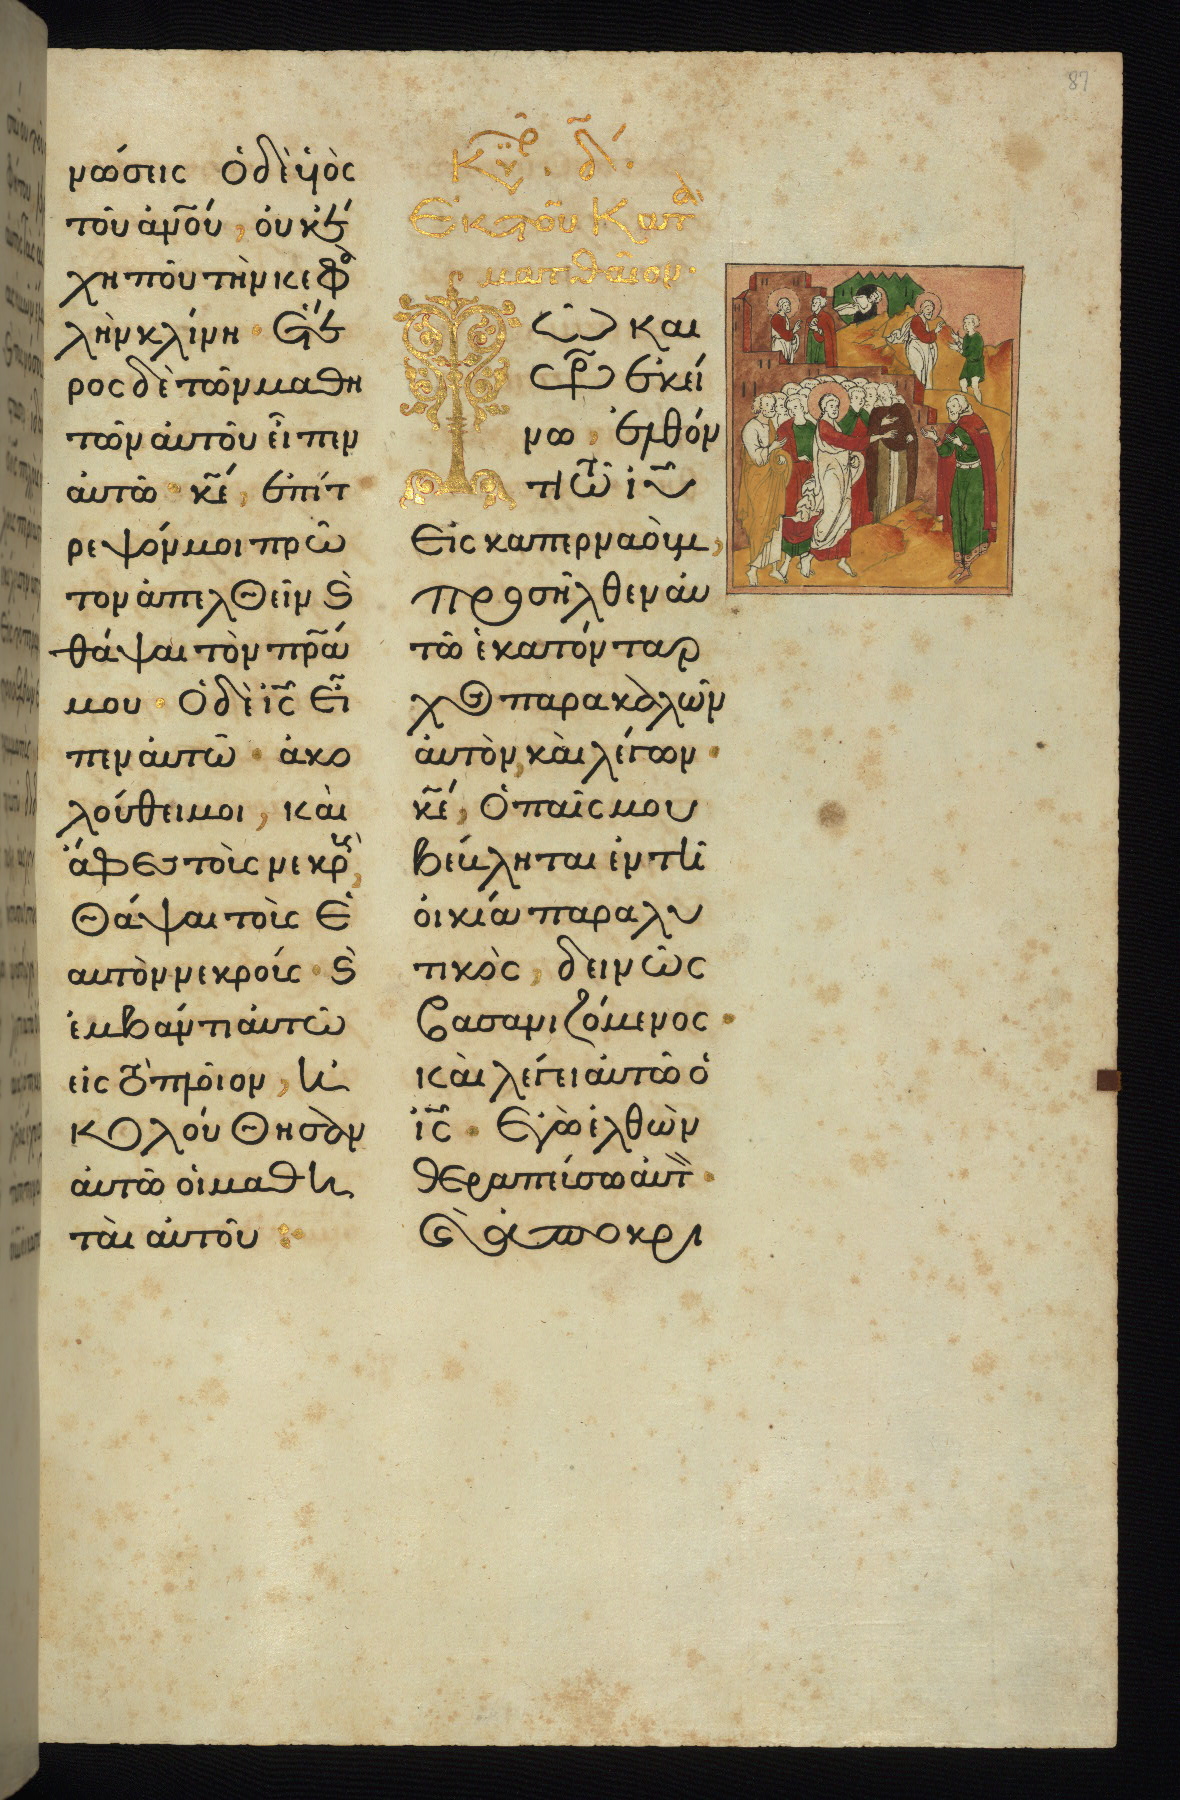 87
νώσεις Ὁ δὲ υἱὸς
τοῦ ἀνου, οὐκ ἔ
χη ποῦ τὴν κεφα
λὴν κλίνη · Ἕτ
ρος δὲ τῶν μαθη
τῶν ἀυτοῦ εἶπεν
ἀυτῶ · κέ, ἐπίτ
ρεψόν μοι πρῶ
τον ἀπελθεῖν ϗ
θάψαι τὸν πρα
μου · Ὁ δὲ ις εἶ
πεν ἀυτῶ · ἀκο
λούθει μοι, κὰι
ἄφες τοὶς νεκρ,
θάψαι τοὶς ἑ
αυτὸν νεκροίς · ϗ
ἐμβάντι ἀυτῶ
εἰς τὸ πλοῖον, ἠ
κολούθησαν
ἀυτῶ ὁι μαθη
τὰι ἀυτοῦ :·
Κυρ. δ.
Ἐκ τοῦ Κατὰ
ματθαῖον·
Τῶ και
ρῶ ἐκεί
νω, ἐλθόν
τι τῶ ιυ
Εἰς καπερναοὺμ,
προσῆλθεν ἀυ
τῶ ἑκατόνταρ
χος παρακαλῶν
ἀυτὸν, κὰι λέγων ·
κέ, Ὁ παῖς μου
βέβληται ἐν τῆ
ὀικία παραλυ
τικὸς, δεινῶς
βασανιζόμενος ·
κὰι λέγει ἀυτῶ ὁ
ις · Ἐγὼ ἐλθὼν
θεραπεύσω ἀυτ ·
ϗ ἀποκρι